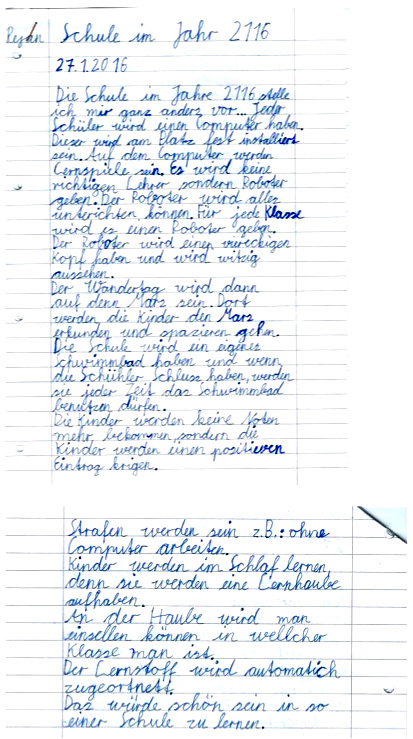 Rejhan Schule im Jahr 2116
27.1.2016
Die Schule im Jahre 2116 stelle
ich mir ganz anders vor... Jeder
Schüler wird einen Computer haben.
Dieser wird am Platz fest installiert
sein. Auf dem Computer werden
Lernspiele sein. Es wird keine
richtigen Lehrer sondern Roboter
geben. Der Roboter wird alles
unterichten können. Für jede Klasse
wird es einen Roboter geben.
Der Roboter wird einen viereckigen
Kopf haben und wird witzig
aussehen.
Der Wandertag wird dann
auf denn Mars sein. Dort
werden die Kinder den Mars
erkunden und spazieren gehen.
Die Schule wird ein eigenes
Schwimmbad haben und wenn
die Schühler Schluss haben, werden
sie jeder Zeit das Schwimmbad
benutzen dürfen.
Die Kinder werden keine Noten
mehr bekommen, sondern die
Kinder werden einen positieven
Eintrag krigen.
Strafen werden sein z.B.: ohne
Computer arbeiten.
Kinder werden im Schlaf lernen,
denn sie werden eine Lernhaube
aufhaben.
An der Haube wird man
einsellen können in wellcher
Klasse man ist.
Der Lernstoff wird automatich
zugeortnett.
Das würde schön sein in so
einer Schule zu lernen.